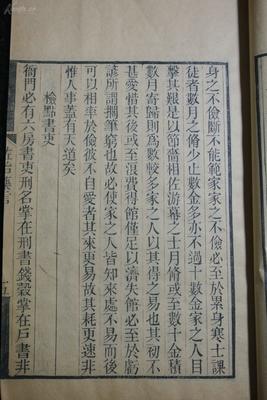 身之不儉斷不能範家家之不儉必至於累身寒士課
徒者數月之脩少止數金多亦不過十數金家之人目
擊其艱是以節嗇相佐游幕之士月脩或至數十金積
數月寄歸則爲數較多家之人以其得之易也其初不
甚愛惜其後或至浪費得館僅足以濟失館必至於虧
諺所謂擱筆窮也故必使家之人皆知來處不易而後
可以相率於儉彼不自愛者其來更易故其耗更速非
惟人事蓋有天道矣
檢點書吏
衙門必有六房書吏刑名掌在刑書錢穀掌在戶書非
佐治藥言